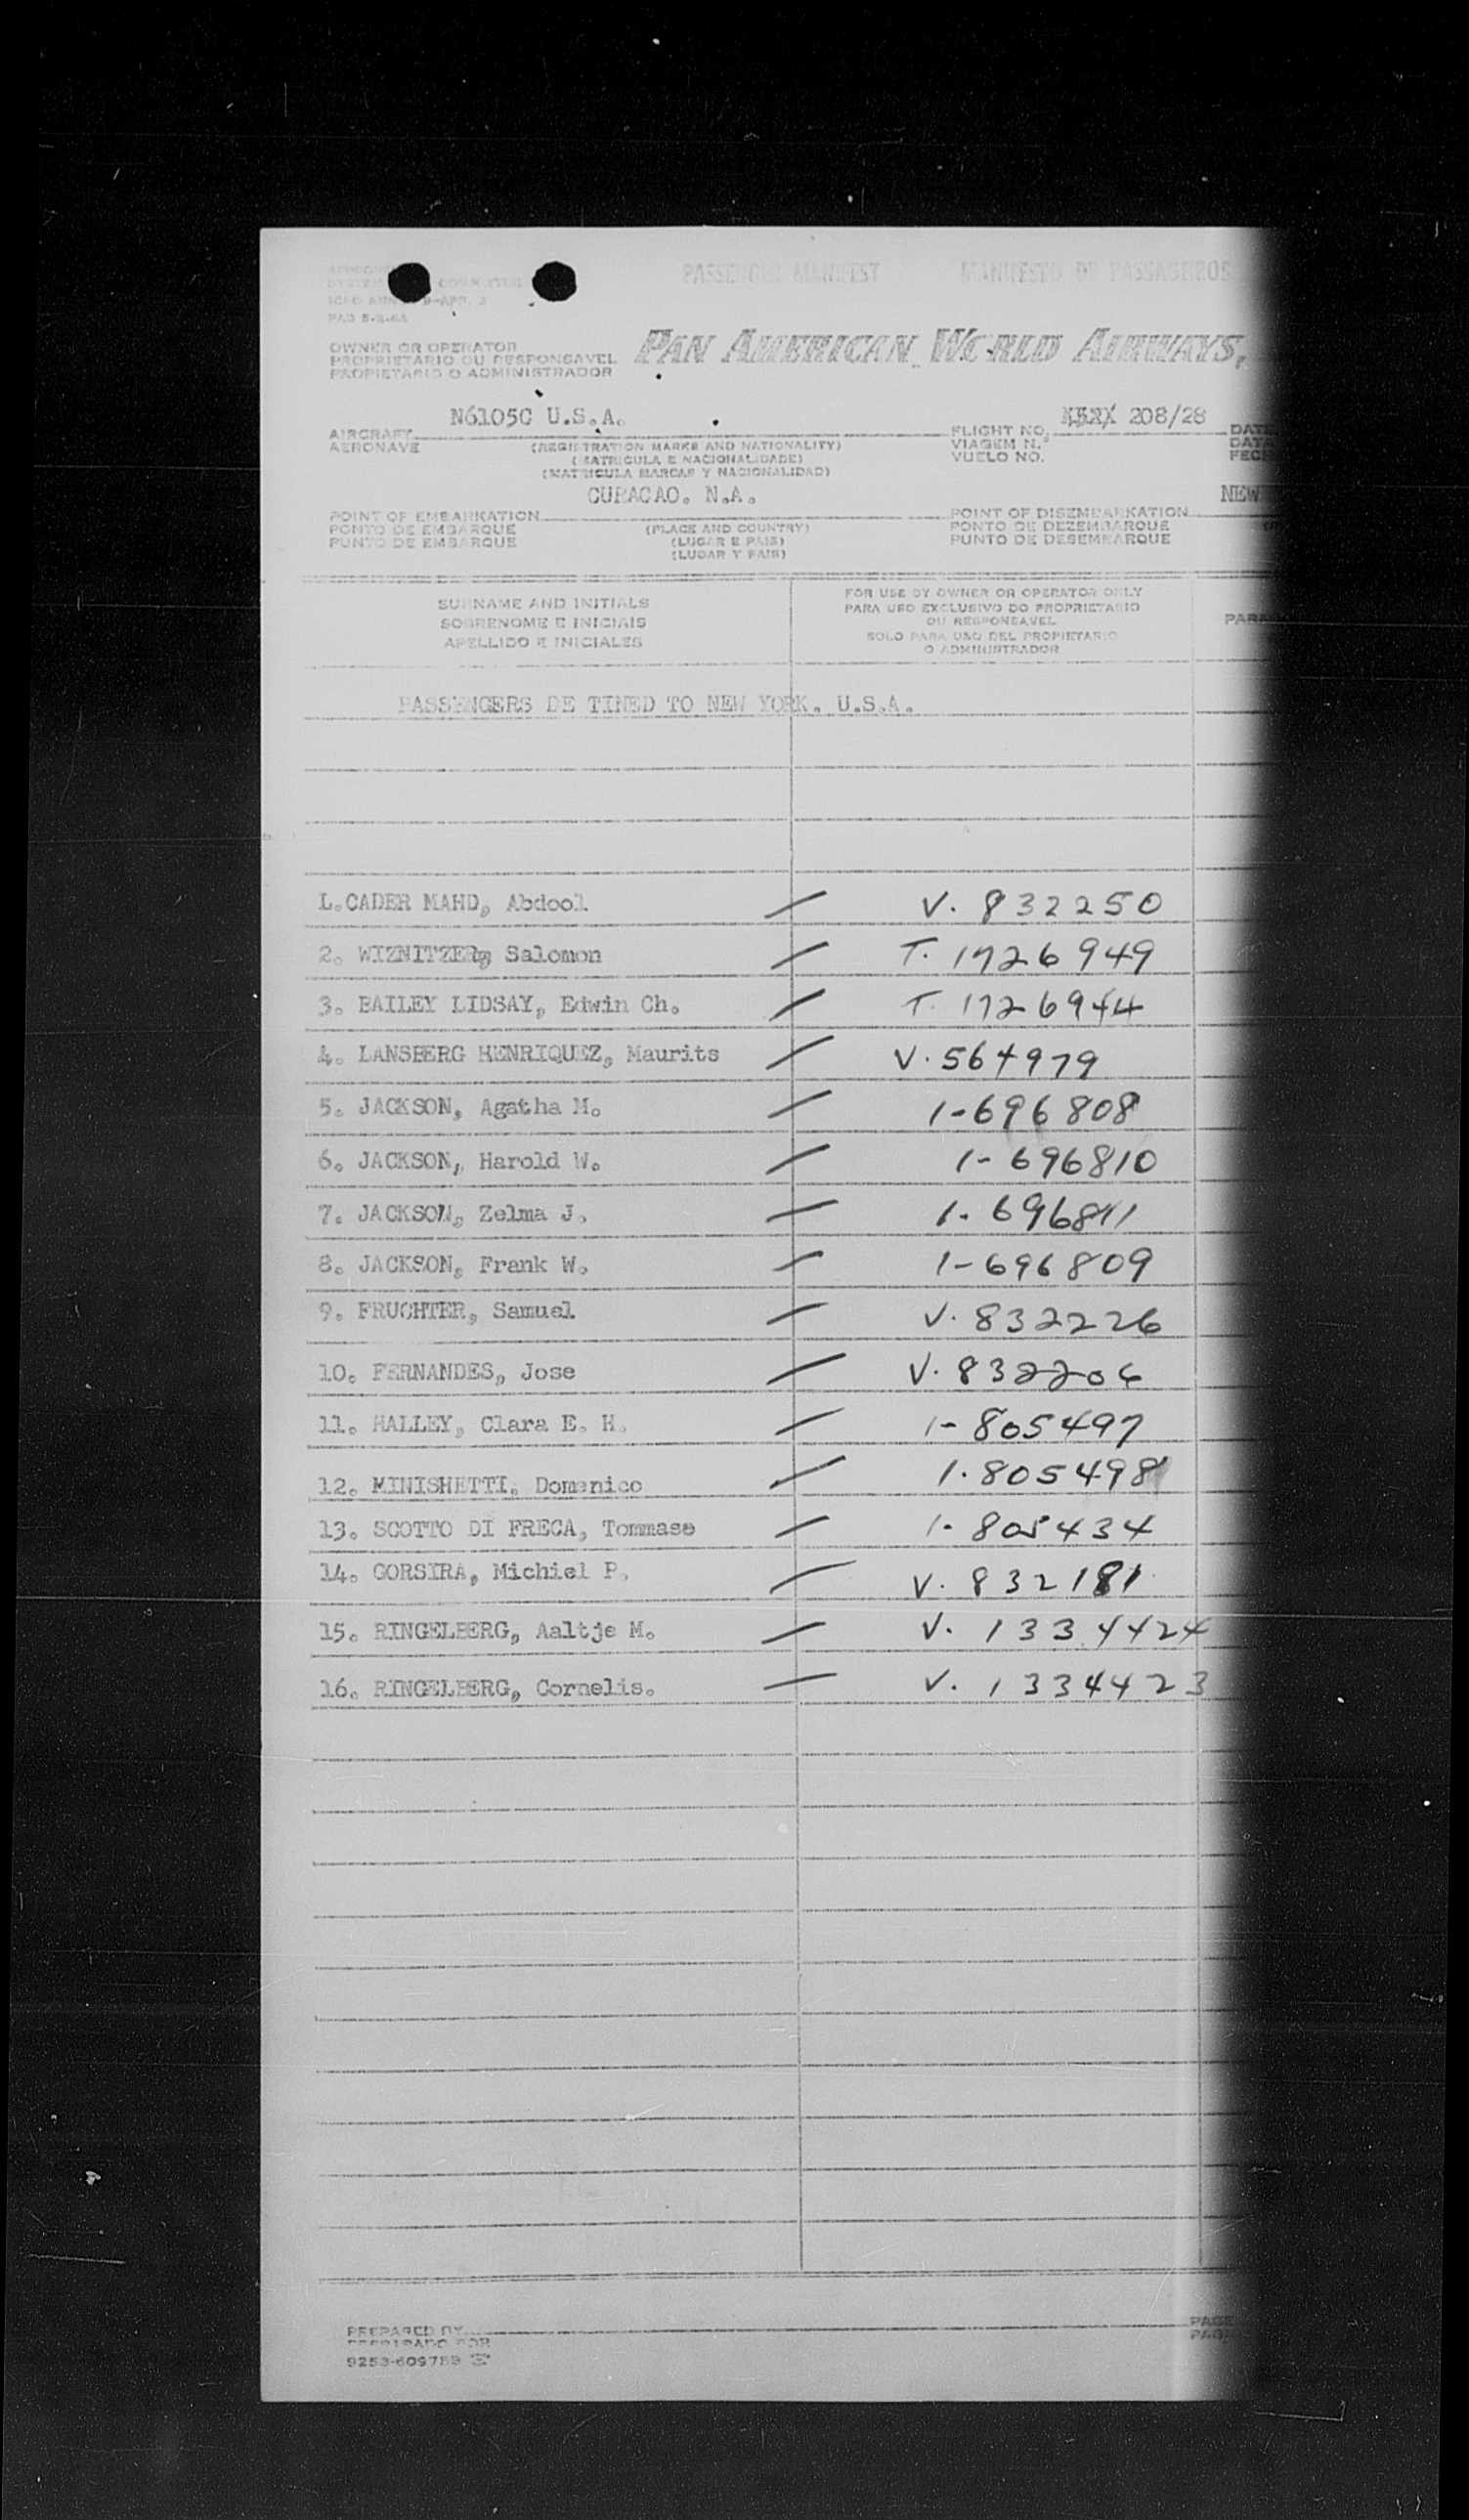 PASSENGER MANIFEST MANIFESTO DE PASSAGEIROS
PAB 5-2-64
OWNER OR OPERATOR
PROPRIETARIO OU RESPONSAVEL
PROPIETARIO O ADMINISTRADOR
PAN AMERICAN WORLD AIRWAYS,
N6105C U.S.A. 208/28
AIRCRAFT
AERONAVE
(REGISTRATION MARKS AND NATIONALITY)
(MATRICULA E NACIONALIDADE)
(MATRICULA MARCAS Y NACIONALIDAD)
FLIGHT NO. DATE
VIAGEM N.º DATA
VUELO NO. FECH
CURACAO. N.A. NEW
POINT OF EMBARKATION
PONTO DE EMBARQUE
PUNTO DE EMBARQUE
(PLACE AND COUNTRY)
(LUGAR E PAIS)
(LUGAR Y PAIS)
POINT OF DISEMBARKATION
PONTO DE DEZEMBARQUE
PUNTO DE DESEMBARQUE
SURNAME AND INITIALS
SOBRENOME E INICIAIS
APELLIDO E INICIALES
FOR USE BY OWNER OR OPERATOR ONLY
PARA USO EXCLUSIVO DO PROPRIETARIO
OU RESPONSAVEL
SOLO PARA USO DEL PROPIETARIO
O ADMINISTRADOR
PARA
PASSENGERS DE TINED TO NEW YORK. U.S.A.
1.CADER MAHD, Abdool V. 832250
2. WIZNITZER, Salomon T. 1726949
3. BAILEY LIDSAY, Edwin Ch. T. 1726944
4. LANSBERG HENRIQUEZ, Maurits V. 564979
5. JACKSON, Agatha M. 1-696808
6. JACKSON, Harold W. 1-696810
7. JACKSON, Zelma J. 1-696811
8. JACKSON, Frank W. 1-696809
9. FRUCHTER, Samuel V. 832226
10. FERNANDES, Jose V. 832206
11. HALLEY, Clara E. H. 1-805497
12. MINISHETTI, Domenico 1.805498
13. SCOTTO DI FRECA, Tommase 1-805434
14. GORSIRA, Michiel P. V. 832181
15. RINGELBERG, Aaltje M. V. 1334424
16. RINGELBERG, Cornelis. V. 1334423
PREPARED BY
PREPARADO POR
PAGE
9253-609789